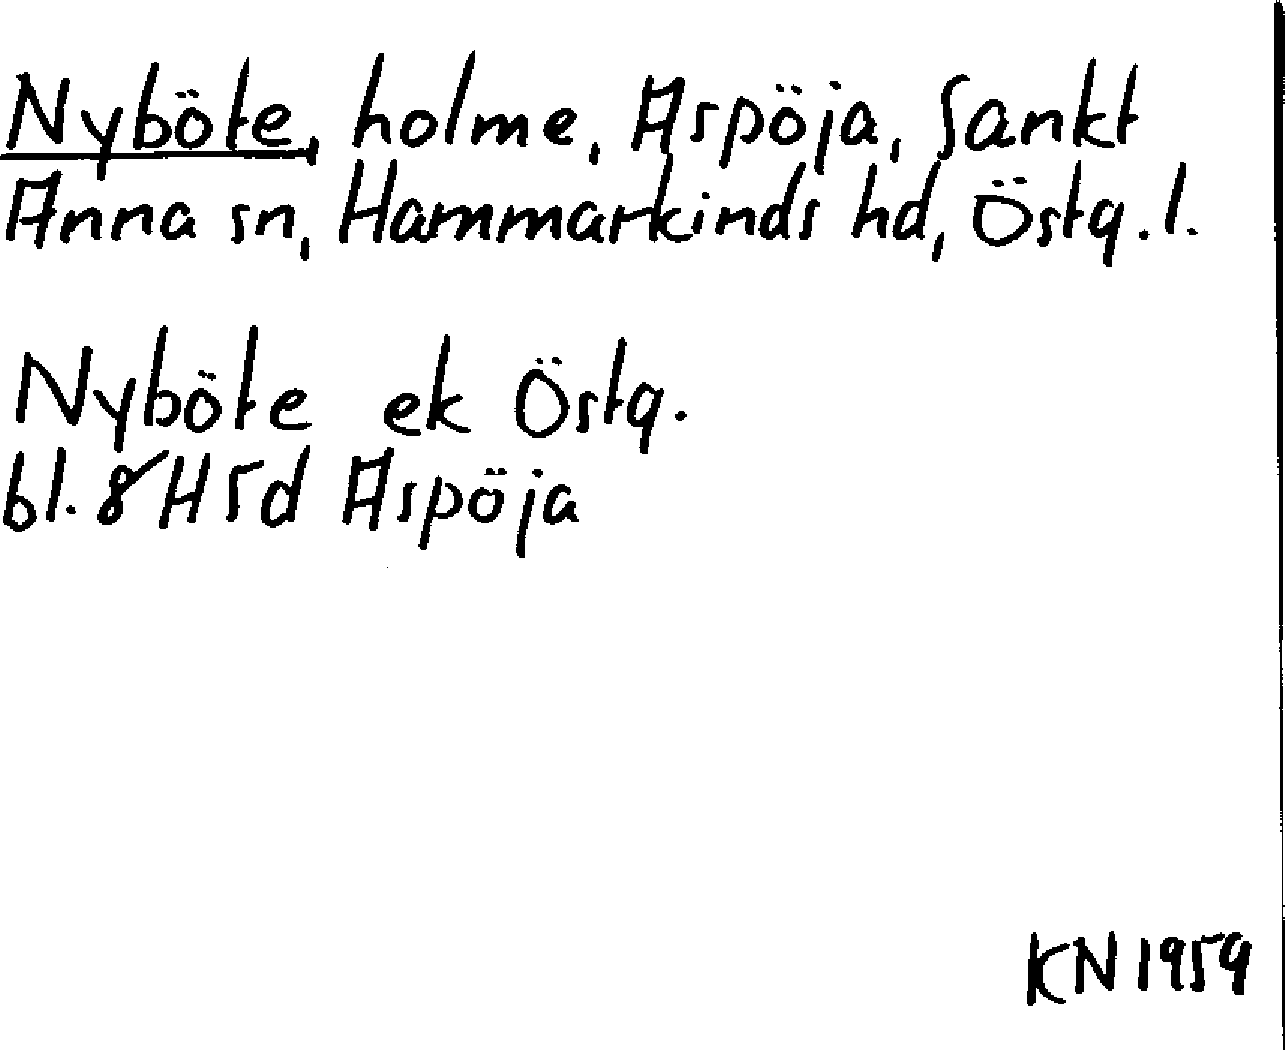 Nyböte, holme, Aspöja, Sankt
Anna sn, Hammarkinds hd, Östg. l.
Nyböte ek Östg.
bl. 8H5d Aspöja
KN 1959